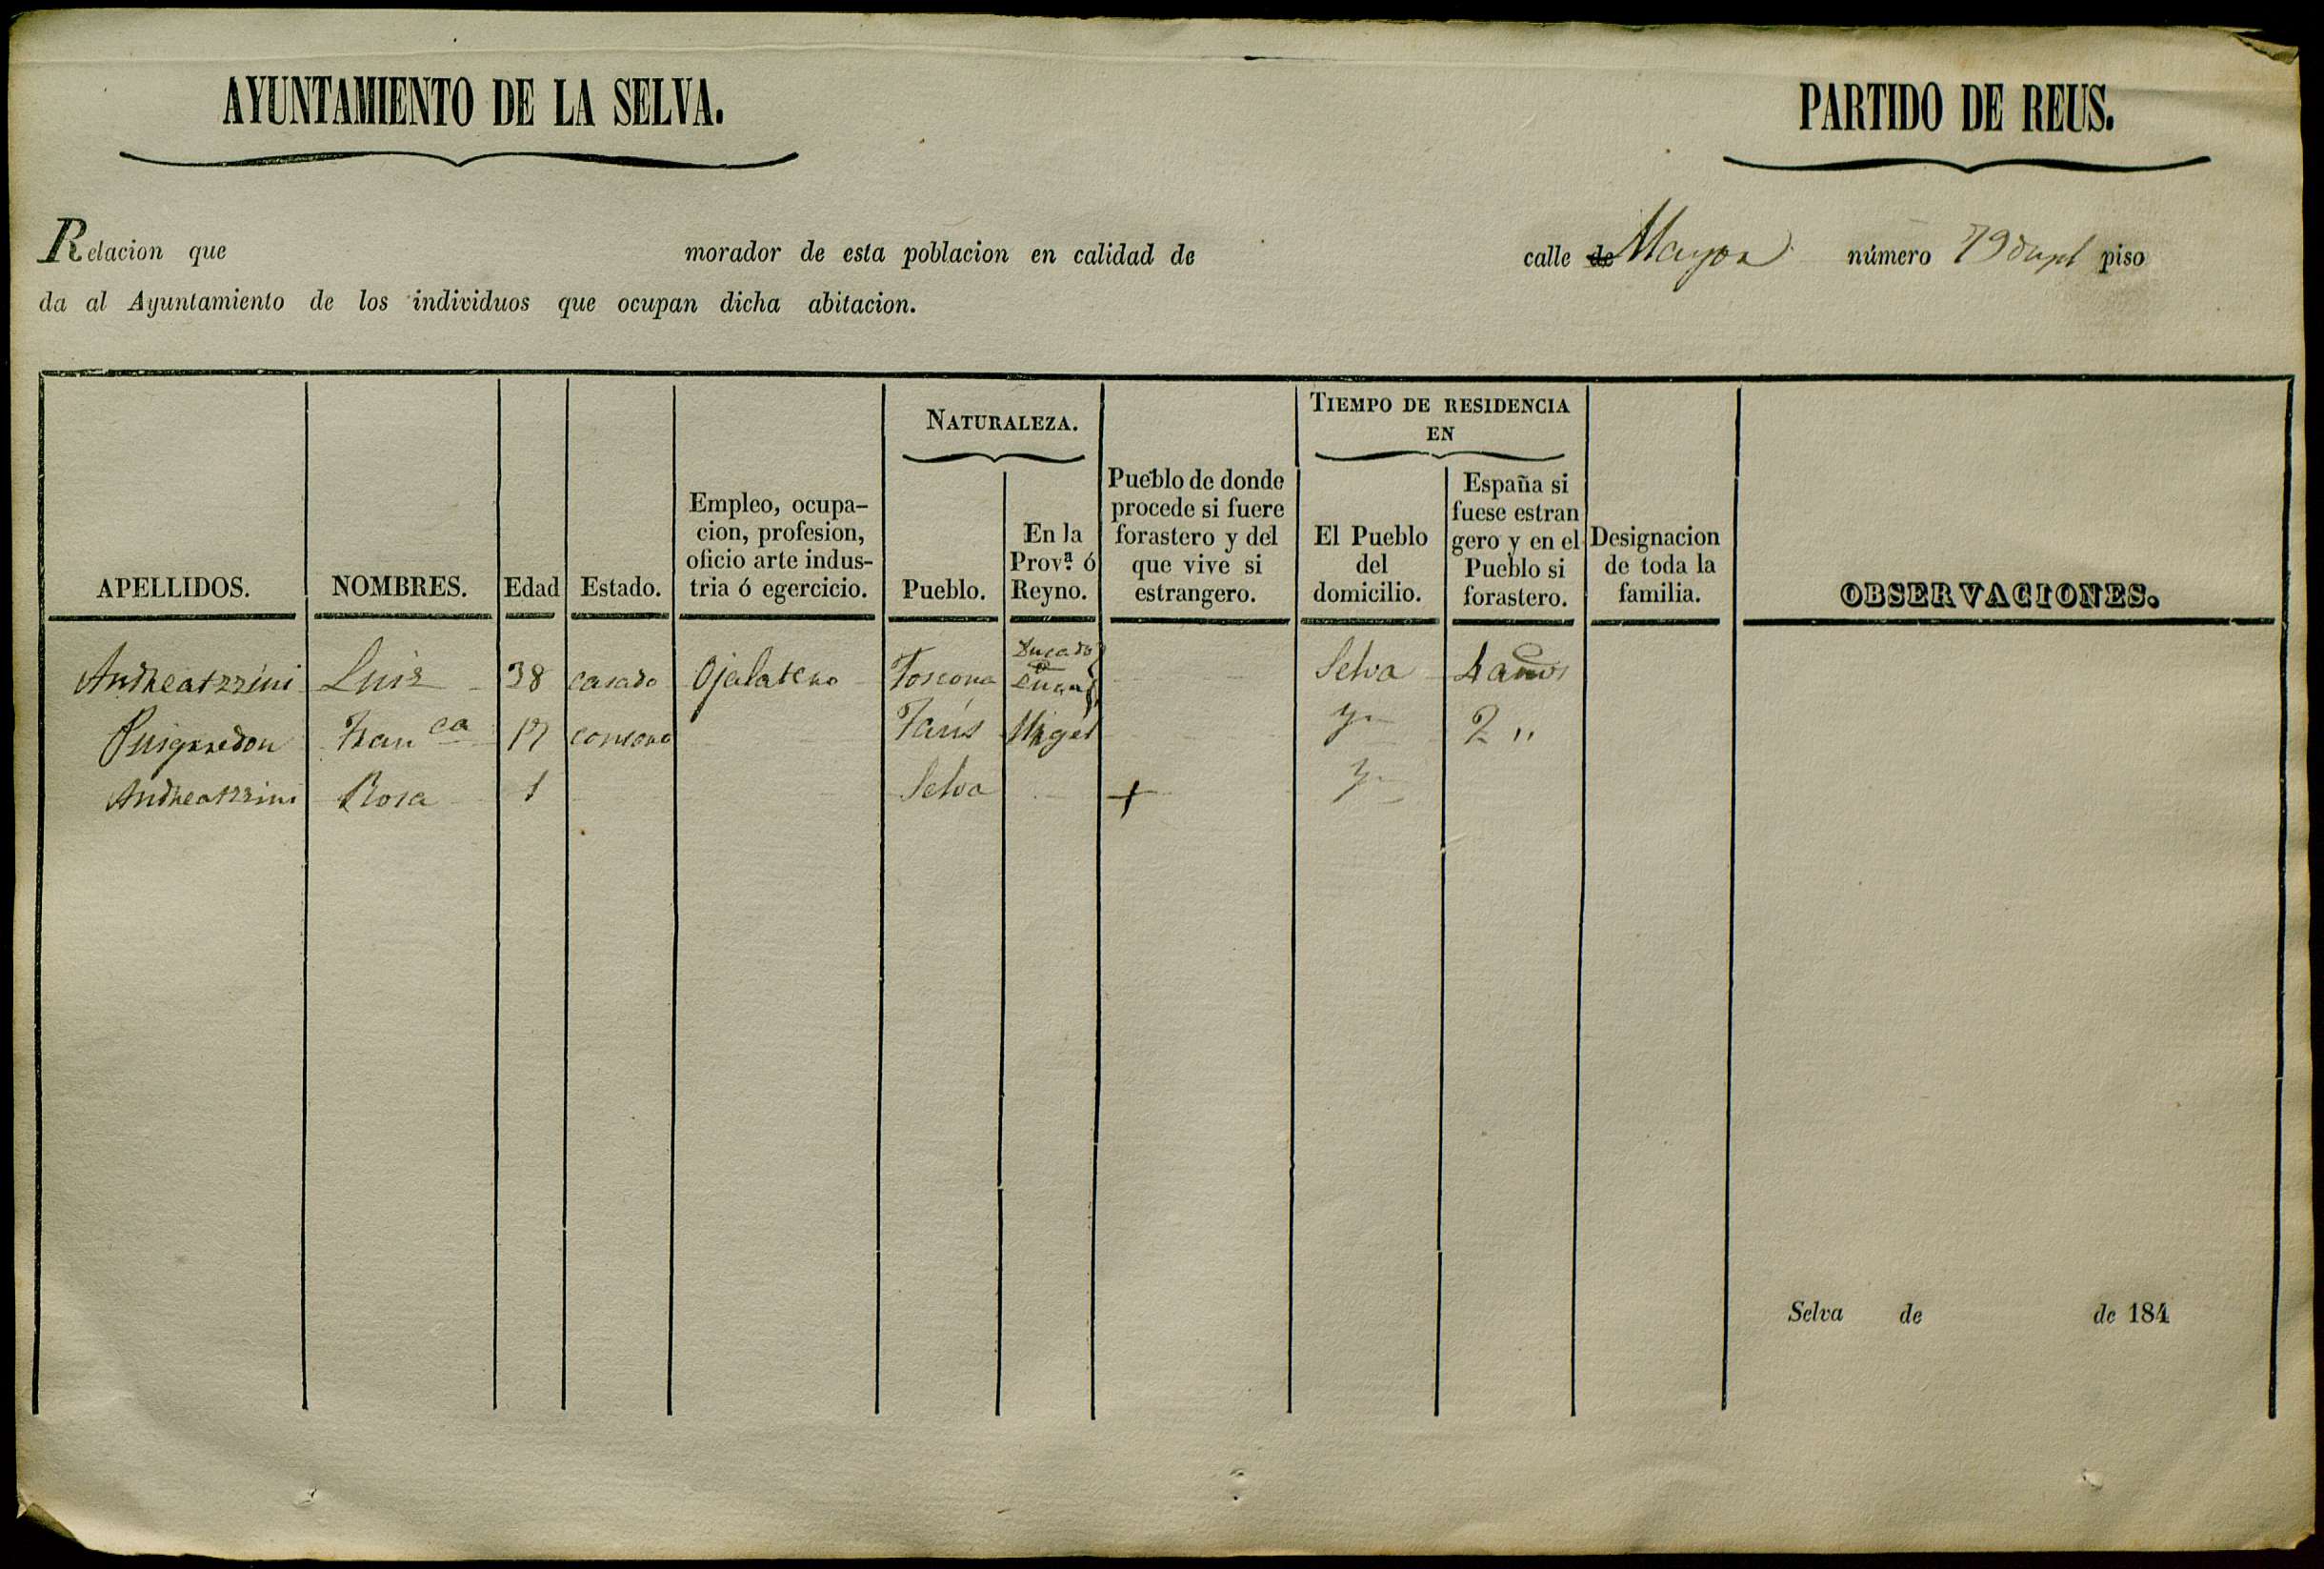 AYUNTAMIENTO DE LA SELVA.
PARTIDO DE REUS.
Relacion que morador de esta poblacion en calidad de calle de Mayor número 79 dupl piso
da al Ayuntamiento de los individuos que ocupan dicha abitacion.
APELLIDOS.
NOMBRES.
Edad
Estado.
Empleo, ocupa-
cion, profesion,
oficio arte indus-
tria ó egercicio.
NATURALEZA.
Pueblo.
En la
Prov.ª ó
Reyno.
Pueblo de donde
procede si fuere
forastero y del
que vive si
estrangero.
TIEMPO DE RESIDENCIA
EN
El Pueblo
del
domicilio.
España si
fuese estran
gero y en el
Pueblo si
forastero.
Designacion
de toda la
familia.
OBSERVACIONES.
Andreatzzini Luis 38 casado Ojalatero Toscona Ducado de Selva 4 años
Puigredon Fran ca 17 Urgel 2 "
Andreatzzini Rosa 1 Selva +
Selva de de 184